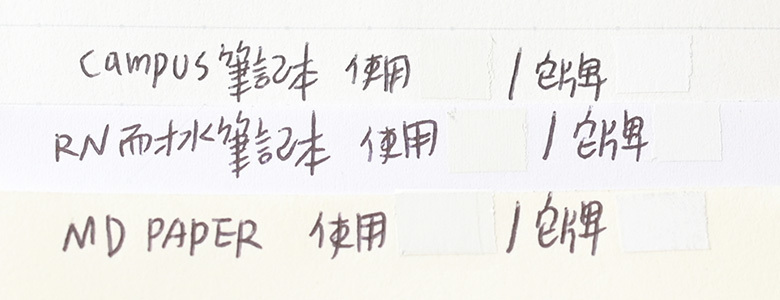 Campus筆記本 使用 / 它牌
RN耐水筆記本 使用 / 它牌
MD PAPER 使用 / 它牌